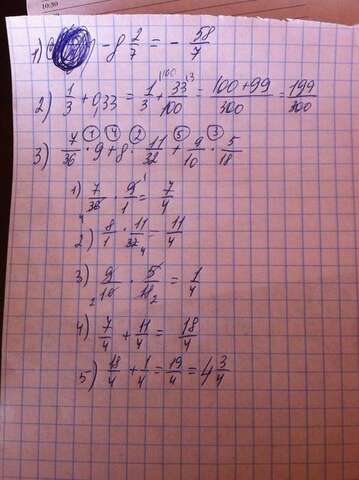 10:30
1) - 8 2/7 = - 58/7
2) 1/3 + 0,33 = 1/3 + 33/100 = (100+99)/300 = 199/300
3) 7/36 · 9 + 8 · 11/32 + 9/10 · 5/18
1) 7/36 · 9/1 = 7/4
2) 8/1 · 11/32 = 11/4
3) 9/10 · 5/18 = 1/4
4) 7/4 + 11/4 = 18/4
5) 18/4 + 1/4 = 19/4 = 4 3/4